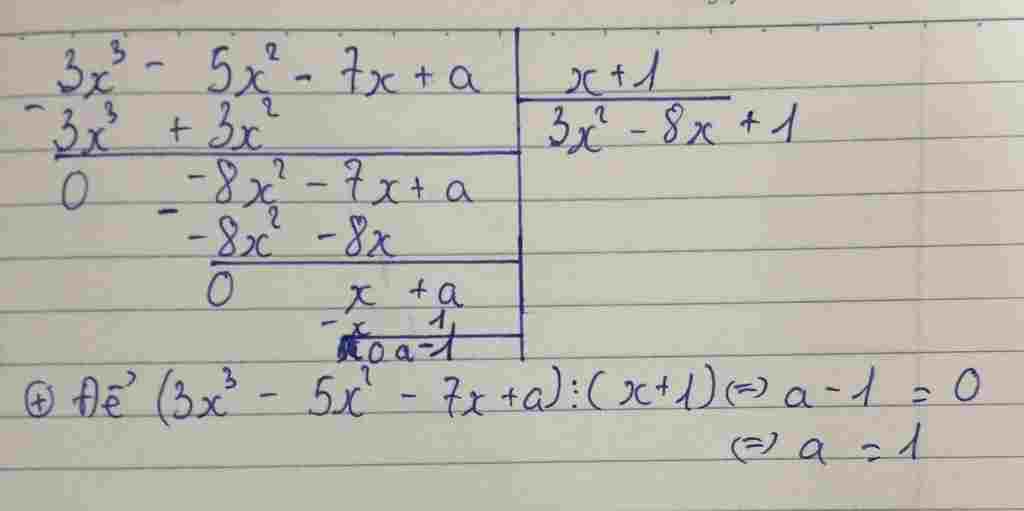 3x³ - 5x² - 7x + a | x + 1
- 3x³ + 3x² | 3x² - 8x + 1
0 - 8x² - 7x + a
- - 8x² - 8x
0 x + a
- x 1
0 a - 1
⊕ Để (3x³ - 5x² - 7x + a) ⋮ (x + 1) (=) a - 1 = 0
(=) a = 1